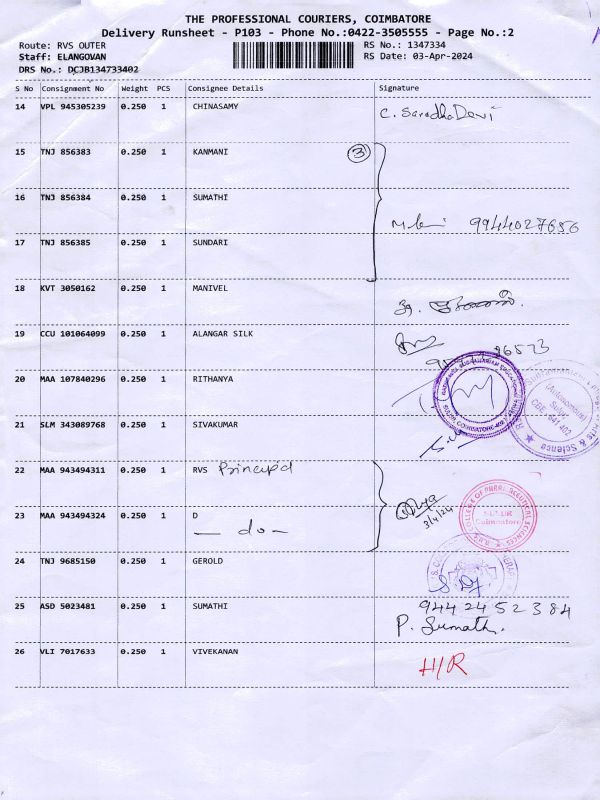 THE PROFESSIONAL COURIERS, COIMBATORE
Delivery Runsheet - P103 - Phone No.:0422-3505555 - Page No.:2
Route: RVS OUTER RS No.: 1347334
Staff: ELANGOVAN RS Date: 03-Apr-2024
DRS No.: DCJB134733402
S No Consignment No Weight PCS Consignee Details Signature
14 VPL 945305239 0.250 1 CHINASAMY C. Saradha Devi
15 TNJ 856383 0.250 1 KANMANI 3
16 TNJ 856384 0.250 1 SUMATHI
9944027656
17 TNJ 856385 0.250 1 SUNDARI
18 KVT 3050162 0.250 1 MANIVEL
19 CCU 101064099 0.250 1 ALANGAR SILK
20 MAA 107840296 0.250 1 RITHANYA
(Autonomous)
Sulur
CBE - 641 402
21 SLM 343089768 0.250 1 SIVAKUMAR
22 MAA 943494311 0.250 1 RVS Principal
23 MAA 943494324 0.250 1 D
— do —
3/4/24
SULUR
Coimbatore
24 TNJ 9685150 0.250 1 GEROLD
25 ASD 5023481 0.250 1 SUMATHI 9442452384
P. Sumathi.
26 VLI 7017633 0.250 1 VIVEKANAN H/R